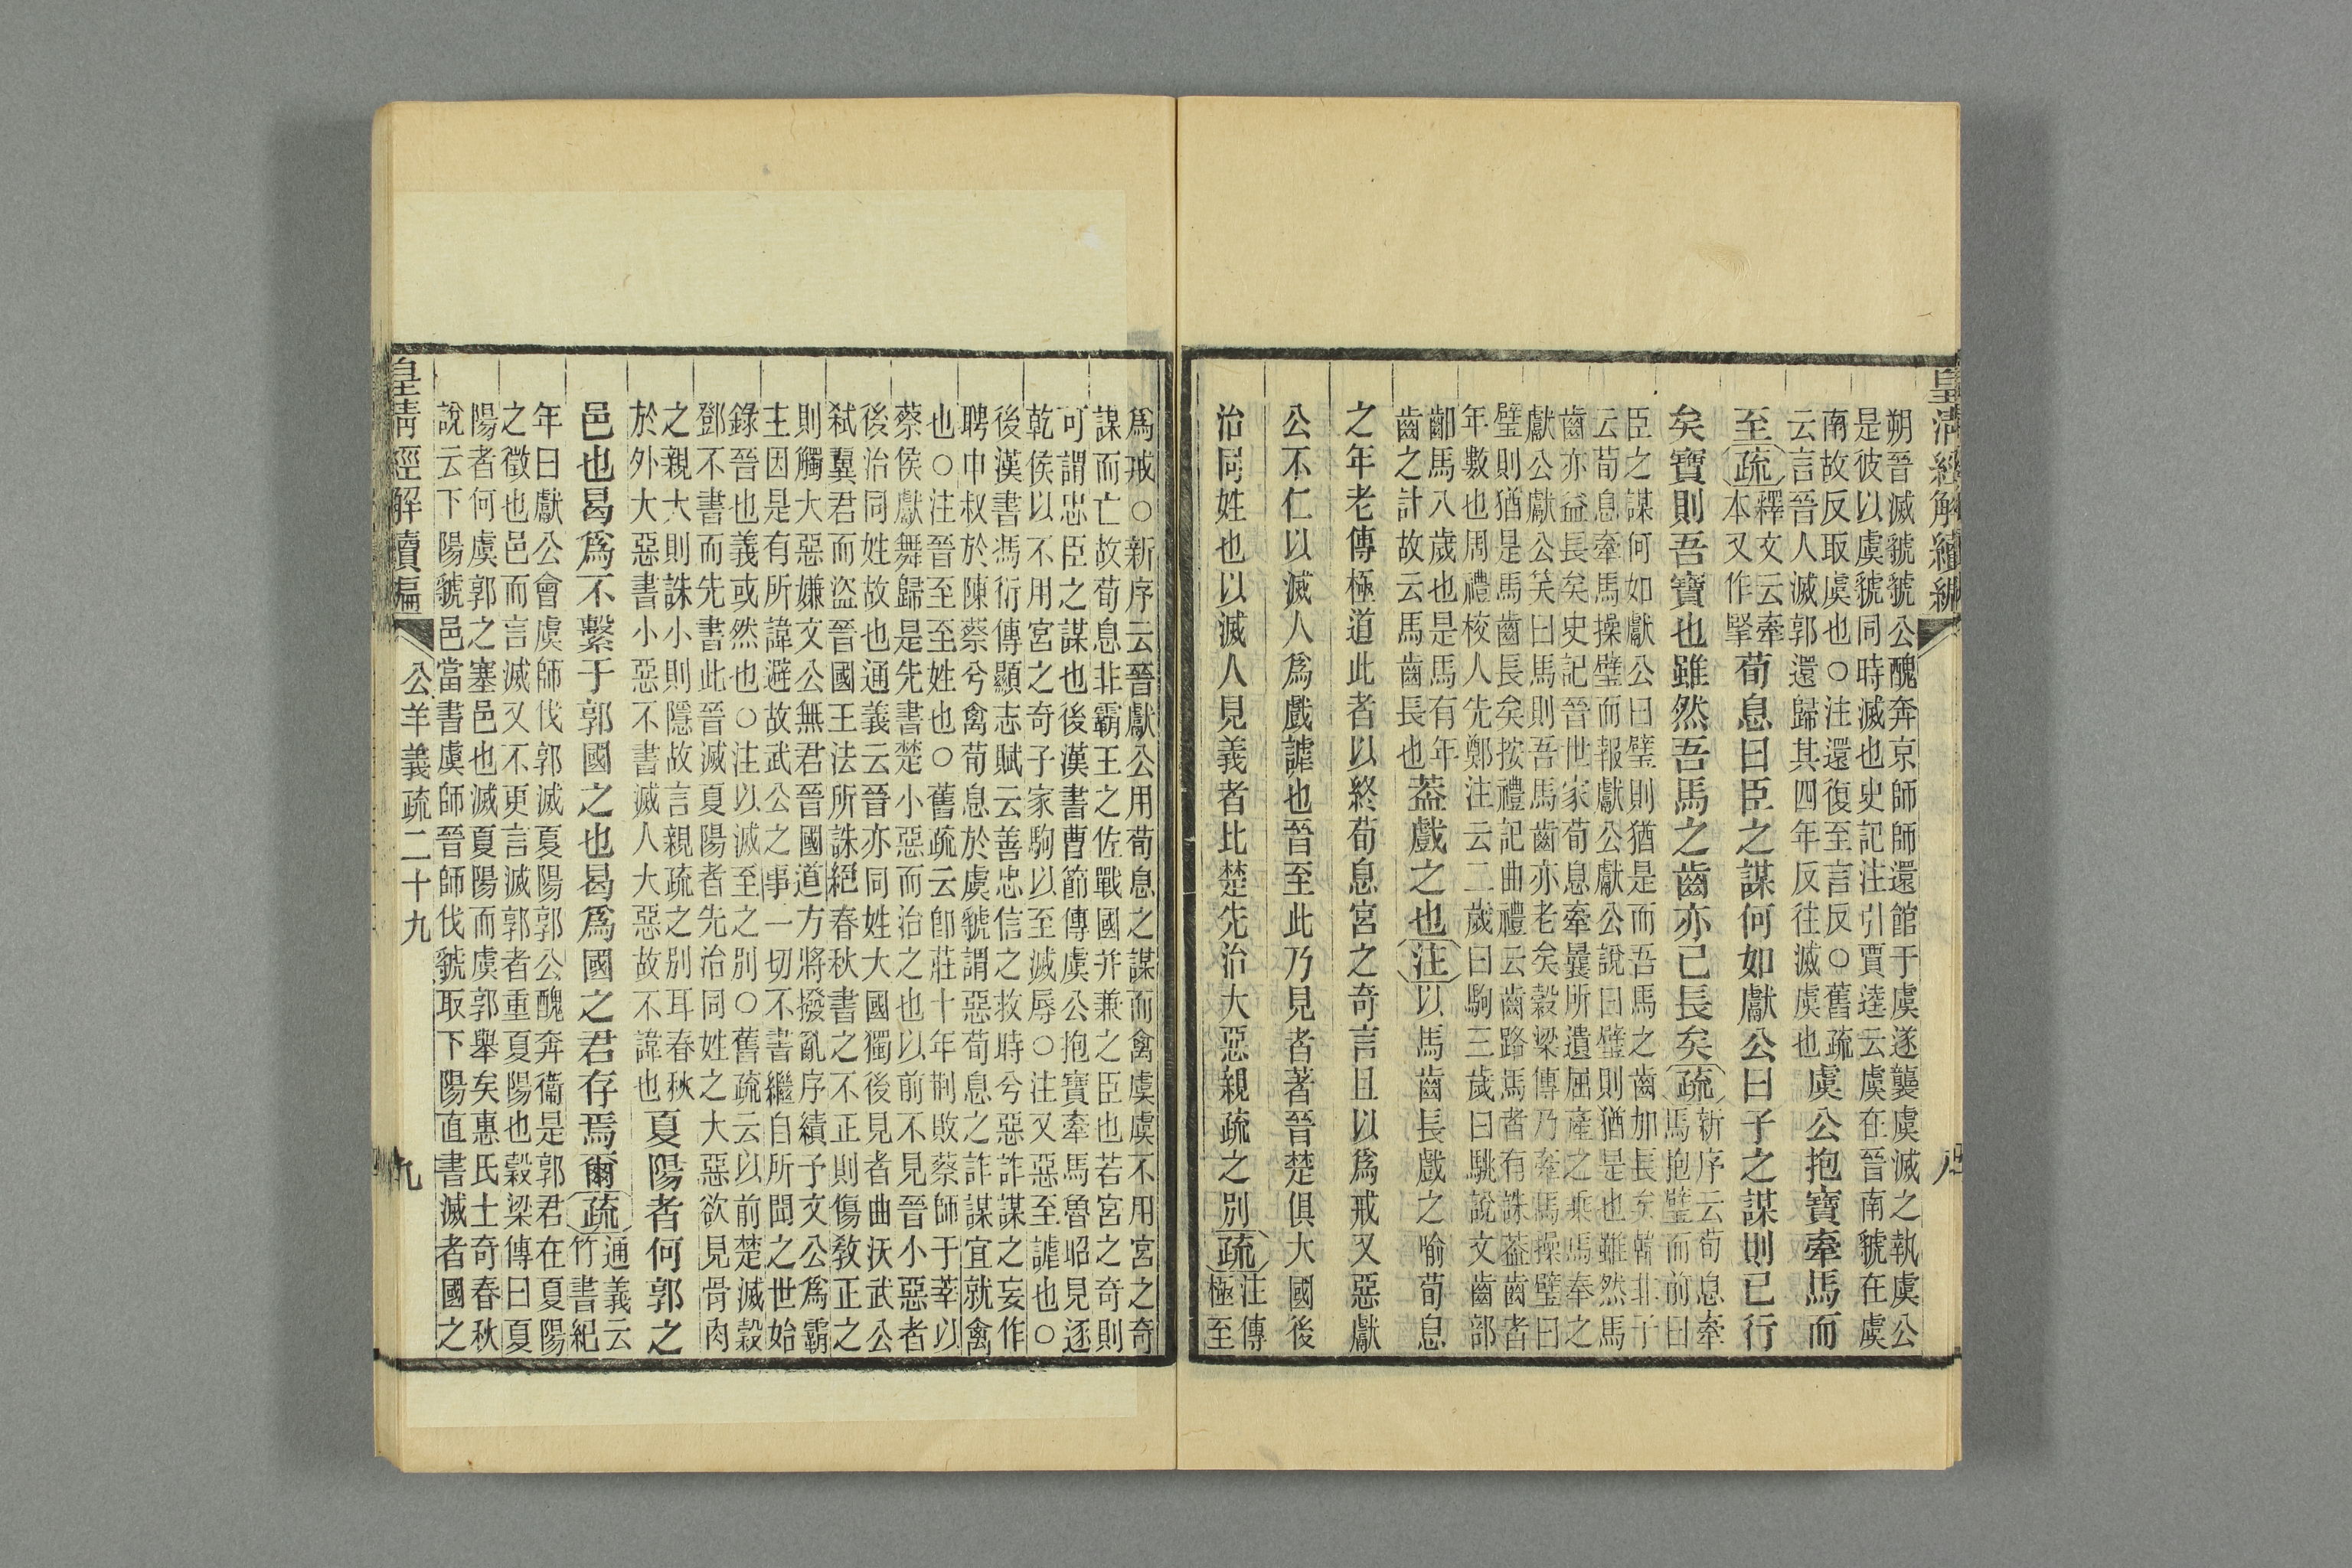 皇清經解續編
八
朔晉滅虢虢公醜奔京師師還館于虞遂襲虞滅之執虞公
是彼以虞虢同時滅也史記注引賈逵云虞在晉南虢在虞
南故反取虞也○注還復至言反○舊疏
云言晉人滅郭還歸其四年反往滅虞也
虞公抱寶牽馬而
至疏
釋文云牽
本又作掔
荀息曰臣之謀何如獻公曰子之謀則已行
矣寶則吾寶也雖然吾馬之齒亦已長矣疏
新序云荀息牽
馬抱璧而前曰
臣之謀何如獻公曰璧則猶是而吾馬之齒加長矣韓非子
云荀息牽馬操璧而報獻公獻公說曰璧則猶是也雖然馬
齒亦益長矣史記晉世家荀息牽曩所遺屈產之乘馬奉之
獻公獻公笑曰馬則吾馬齒亦老矣穀梁傳乃牽馬操璧曰
璧則猶是馬齒長矣按禮記曲禮云齒路馬者有誅葢齒者
年數也周禮校人先鄭注云二歲曰駒三歲曰駣說文齒部
馬八歲也是馬有年
齒之計故云馬齒長也
葢戲之也注以馬齒長戲之喻荀息
之年老傳極道此者以終荀息宮之奇言且以爲戒又惡獻
公不仁以滅人爲戲謔也晉至此乃見者著晉楚俱大國後
治同姓也以滅人見義者比楚先治大惡親疏之別疏
注傳
極至
爲戒○新序云晉獻公用荀息之謀而禽虞虞不用宮之奇
謀而亡故荀息非霸王之佐戰國并兼之臣也若宮之奇則
可謂忠臣之謀也後漢書曹節傳虞公抱寶牽馬魯昭見逐
乾侯以不用宮之奇子家駒以至滅辱○注又惡至謔也○
後漢書馮衍傳顯志賦云善忠信之救時兮惡詐謀之妄作
聘申叔於陳蔡兮禽荀息於虞虢謂惡荀息之詐謀宜就禽
也○注晉至至姓也○舊疏云卽莊十年荆敗蔡師于莘以
蔡侯獻舞歸是先書楚小惡而治之也以前不見晉小惡者
後治同姓故也通義云晉亦同姓大國獨後見者曲沃武公
弒翼君而盜晉國王法所誅絕春秋書之不正則傷教正之
則觸大惡嫌文公無君晉國道方將撥亂序績予文公爲霸
主因是有所諱避故武公之事一切不書繼自所聞之世始
錄晉也義或然也○注以滅至之別○舊疏云以前楚滅穀
鄧不書而先書此晉滅夏陽者先治同姓之大惡欲見骨肉
之親大則誅小則隱故言親疏之別耳春秋
於外大惡書小惡不書滅人大惡故不諱也
夏陽者何郭之
邑也曷爲不繫于郭國之也曷爲國之君存焉爾疏
通義云
竹書紀
年曰獻公會虞師伐郭滅夏陽郭公醜奔衞是郭君在夏陽
之徵也邑而言滅又不更言滅郭者重夏陽也穀梁傳曰夏
陽者何虞郭之塞邑也滅夏陽而虞郭舉矣惠氏士奇春秋
說云下陽虢邑當書虞師晉師伐虢取下陽直書滅者國之
皇清經解續編
公羊義疏二十九
九